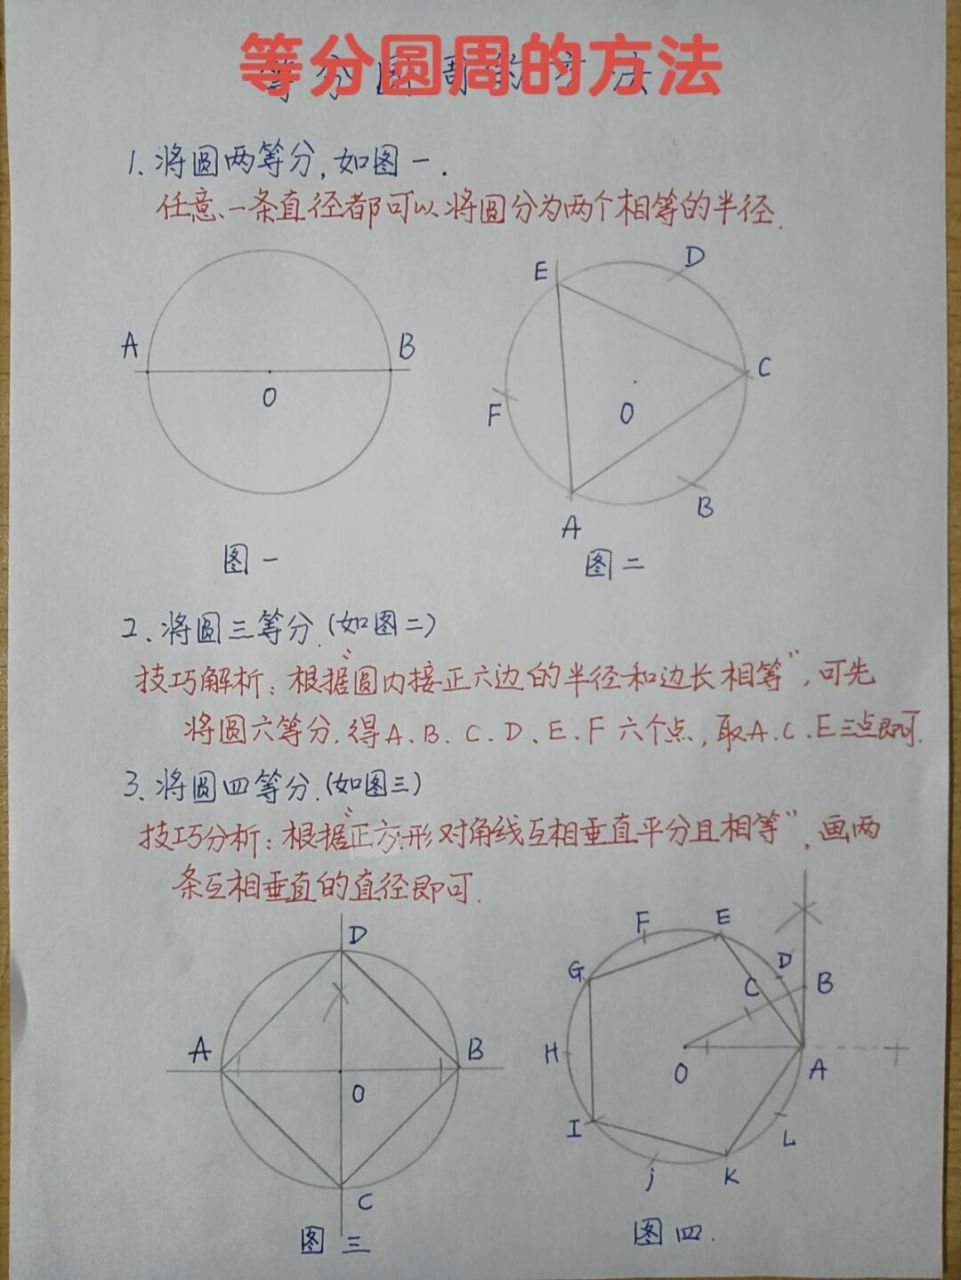 等分圆周的方法
等分圆周的方法
1.将圆两等分,如图一.
任意一条直径都可以将圆分为两个相等的半径.
A
B
O
图一
E
D
C
F
O
A
B
图二
2、将圆三等分.(如图二)
技巧解析:根据“圆内接正六边的半径和边长相等”,可先
将圆六等分.得A、B、C、D、E、F六个点,取A.C.E三点即可.
3、将圆四等分.(如图三)
技巧分析:根据“正方形对角线互相垂直平分且相等”,画两
条互相垂直的直径即可.
D
A
B
O
C
图三
F
E
G
D
C
B
H
O
A
I
L
j
K
图四.